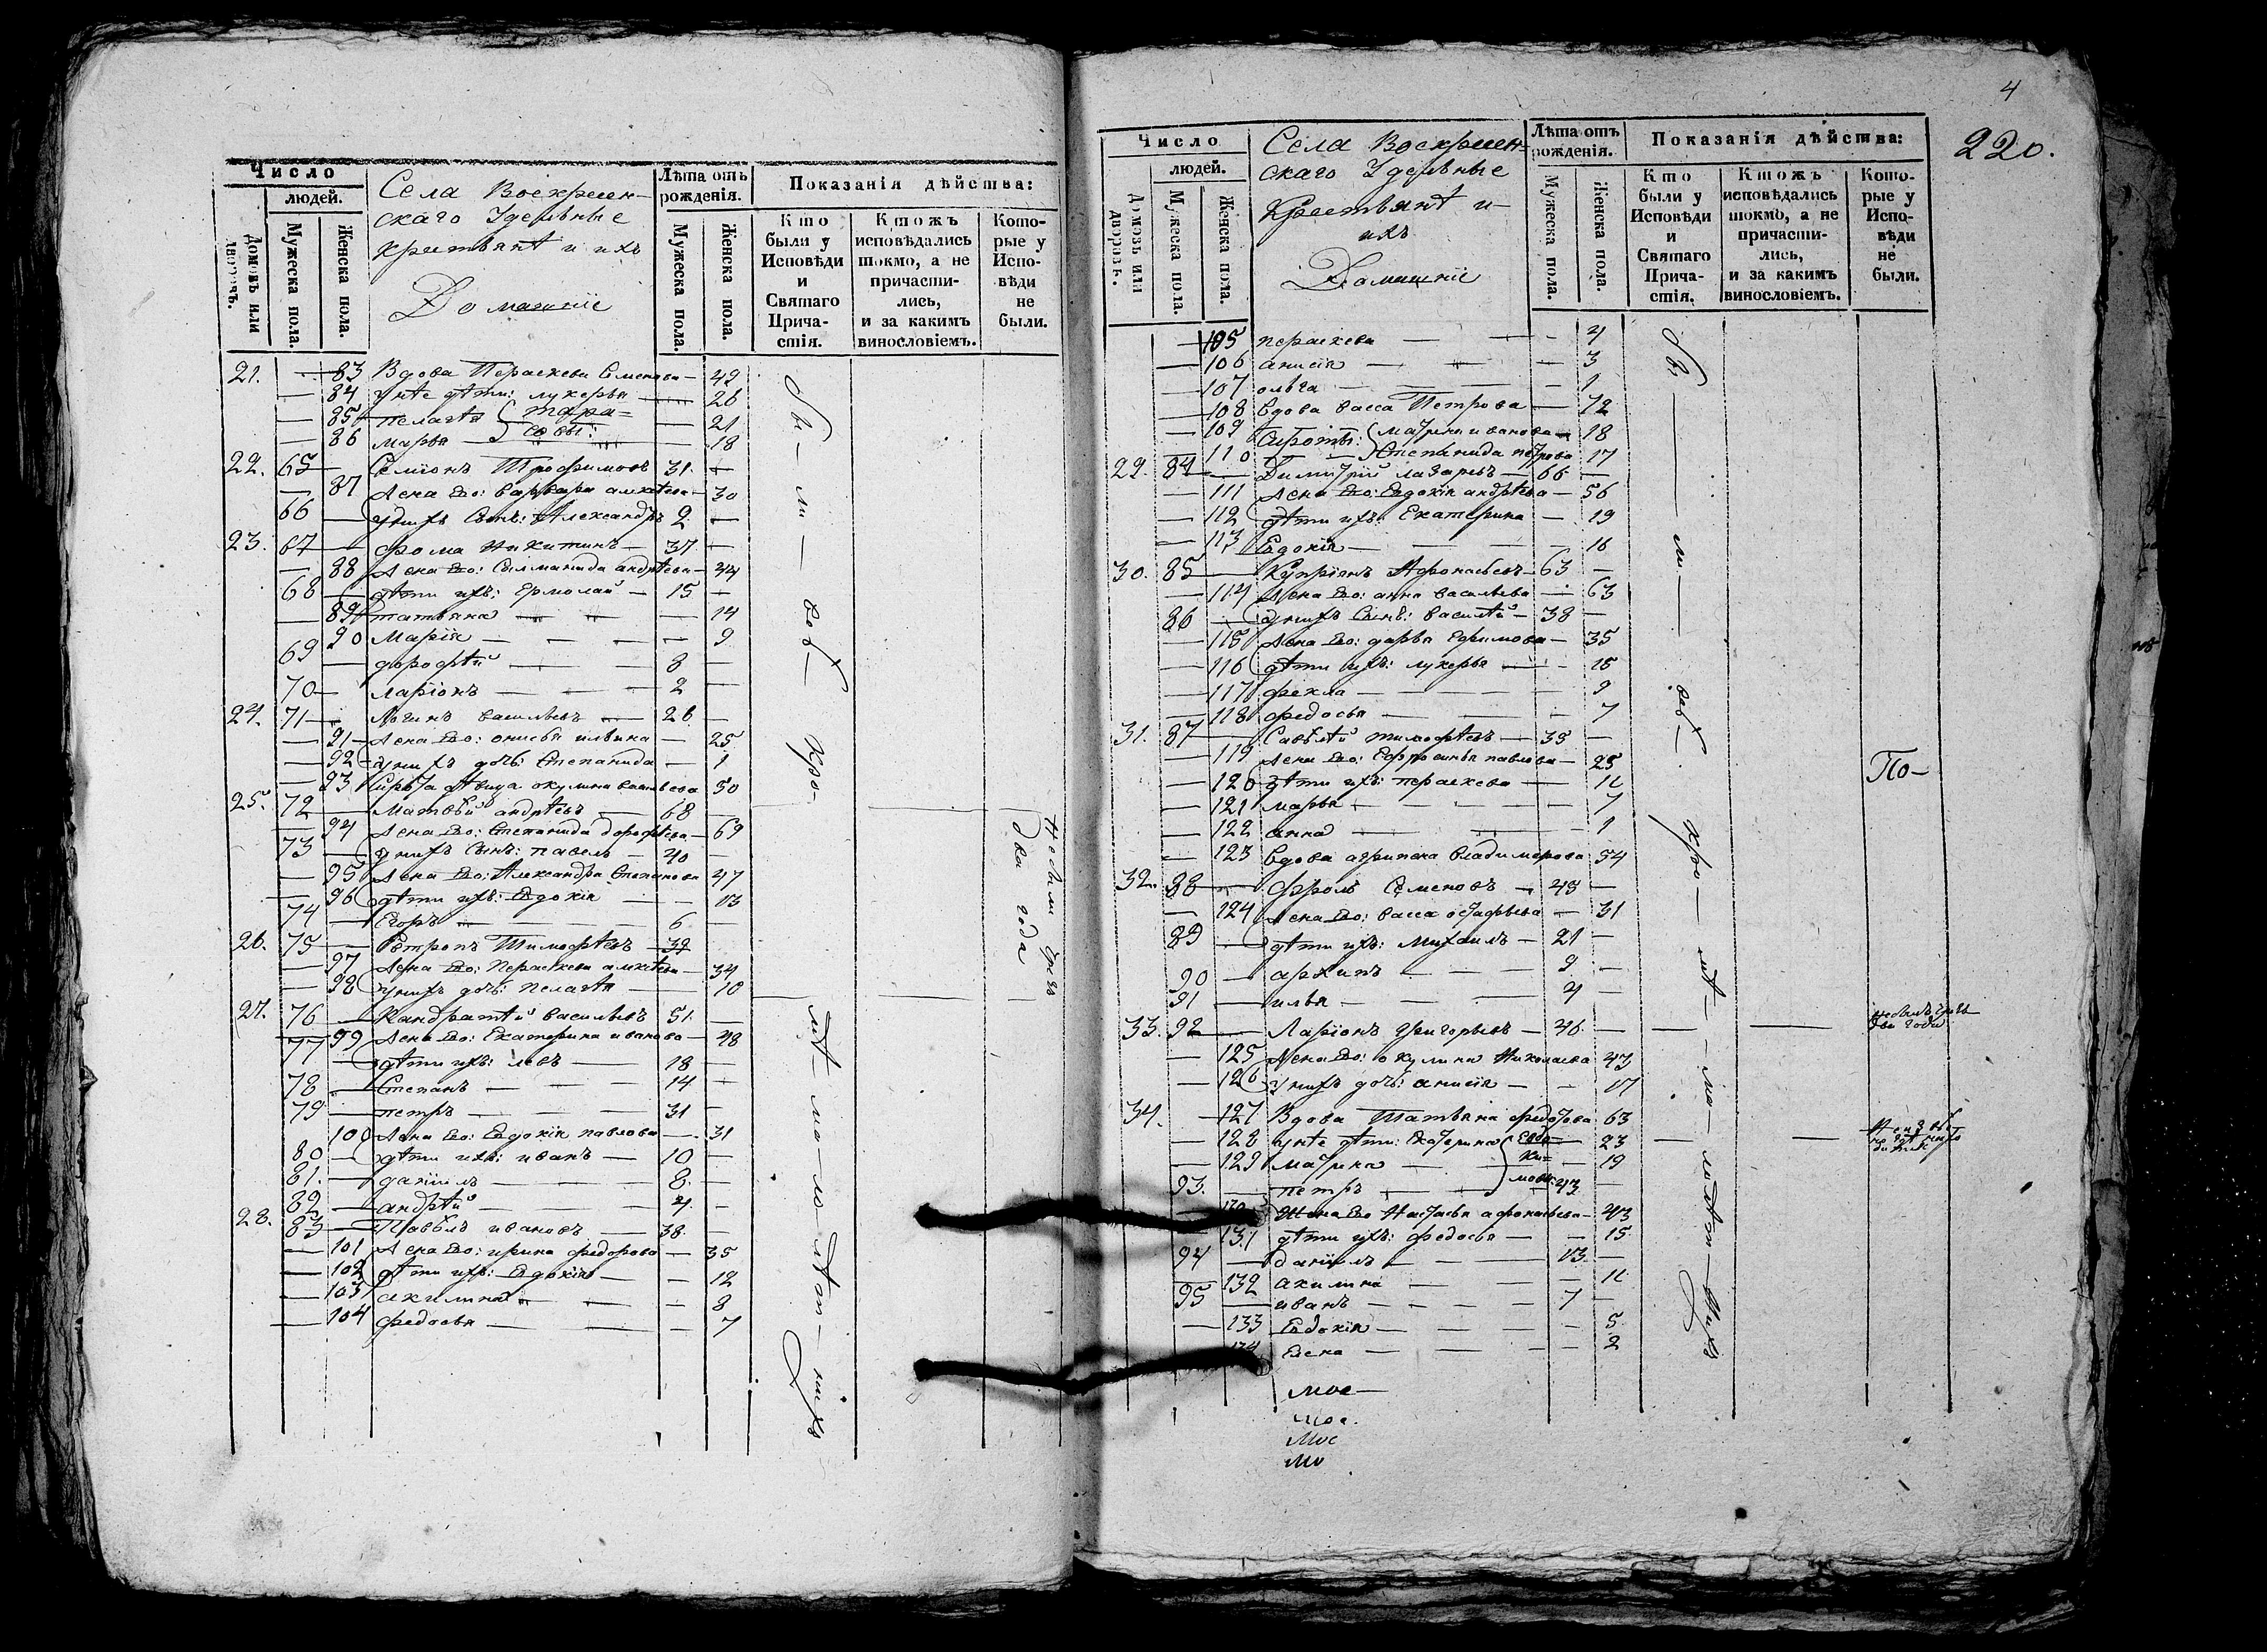 Число
людей.
Домовъ или дворовъ.
Мужеска пола.
Женска пола.
Села Воскресен-
скаго Удельные
крестьянѣ и ихъ
Домашніе
Лѣта отъ рожденія.
Мужеска пола.
Женска пола.
Показанія дѣйства:
Кто были у Исповѣди и Святаго Причастія.
Ктожъ исповѣдались токмо, а не причастились, и за какимъ винословіемъ.
Которые у Исповѣди не были.
21. — 83 Вдова Параскева Семенова — 49
— 84 у нѣе дѣти: лукерья — 26
— 85 пелагѣя — 21
— 86 марья — 18
22. 65 — Семіонъ Трофимовъ 31 —
— 87 жена Его: варвара алексѣева — 30
66 — у нихъ Сынъ: Александръ 2 —
23. 67 — фома Никитинъ — 37 —
— 88 жена Его: Саламанида андрѣева — 44
68 — дѣти ихъ: Ермолай — 15 —
— 89 татьяна — 14
90 Марія — 9
69 — дорофѣй — 8 —
70 — ларіонъ — 2 —
24. 71 — Логинъ васильевъ — 26 —
— 91 жена Его: онисья ильина — 25
— 92 у нихъ дочь: Степанида — 1
— 93 Сирота дѣвица окулина васильева 50
25. 72 — Матвѣй андрѣевъ — 68 —
— 94 жена Его: Степанида дорофѣева — 69
73 — у нихъ Сынъ: павелъ — 40 —
— 95 жена Его: Александра Степанова 47
— 96 дѣти ихъ: Евдокія — 13
74 — Егоръ — 6 —
26. 75 — Петропъ Тимофѣевъ 39
— 97 жена Его: Параскева алексѣева — 34
— 98 у нихъ дочь: пелагѣя — 10
27. 76 — Кандратѣй васильевъ 51 —
— 99 жена Его: Екатерина иванова — 48
77 — дѣти ихъ: левъ — 18 —
78 — Степанъ — 14 —
79 — петръ — 31 —
100 жена Его: Евдокія павлова — 31
80 — дѣти ихъ: иванъ — 10 —
81. — даніилъ — 8. —
82 — андрѣй — 4. —
28. 83 — Павѣлъ ивановъ — 38. —
— 101 жена Его: ирина федорова — 35
— 102 дѣти ихъ: Евдокія — 12
— 103 акилина — 8
— 104 федосья — 7
Не были чрез
два года
4
220.
Число
людей.
Домовъ или дворовъ.
Мужеска пола.
Женска пола.
Села Воскресен-
скаго Удельные
Крестьянѣ и
ихъ
Домашніе
Лѣта отъ рожденія.
Мужеска пола.
Женска пола.
Показанія дѣйства:
Кто были у Исповѣди и Святаго Причастія.
Ктожъ исповѣдались токмо, а не причастились, и за какимъ винословіемъ.
Которые у Исповѣди не были.
— 105 параскева — 4
— 106 анисія — 3
— 107 ольга — 1
— 108 вдова васса Петрова — 72
— 109 Сироты: матрена иванова — 18
— 110 Степанида петрова 17
29. 84 — Димитрій лазаревъ — 66 —
— 111 жена Его: Евдокія андрѣева — 56
— 112 дѣти ихъ: Екатерина — 19
— 113 Евдокія — 16
30. 85 — Купріянъ Афонасьевъ — 63 —
— 114 жена Его: анна васильева — 63
86 — у нихъ Сынъ: василѣй — 38 —
— 115 жена Его: дарья Ефимова — 35
— 116 дѣти ихъ: лукерья — 15
— 117 фекла — 9
— 118 федосья — 7
31. 87 — Савѣлѣй тимофѣевъ — 35 —
— 119 жена Его: Ефросинья павлова — 25
— 120 дѣти ихъ: параскева — 11
— 121 марья — 7
— 122 анна — 1
— 123 вдова агрипена владимерова 54
По-
32. 88 — Фролъ Семеновъ — 43 —
— 124 жена Его: васса остафьева — 31
89 — дѣти ихъ: Михаилъ — 21 —
90 — архипъ — 9 —
91 — илья — 4 —
33. 92 — Ларіонъ григорьевъ — 46. —
два года
— 125 жена Его: окулина Николаева 43
— 126 у нихъ дочь: анисія — 17
34. — 127 Вдова Татьяна федотова 63
— 128 у нѣе дѣти: Екатерина — 23
— 129 матрена — 19
93. — петръ — 43 —
130 Жена Его Настасья афонасьева — 43
131 дѣти ихъ: федосья — 15
94 — даніилъ — 13. —
132 акилина — 11
95 — иванъ — 7 —
— 133 Евдокія — 5
134 Елена — 2
мос
мос
Мос
мо